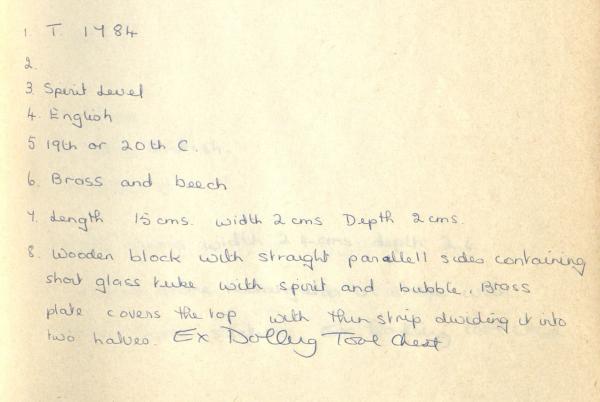 1. T. 1784
2.
3. Spirit Level
4. English
5 19th or 20th C.
6. Brass and beech
7. Length 15 cms. width 2 cms Depth 2 cms.
8. Wooden block with straight parallell sides containing
short glass tube with spirit and bubble. Brass
plate covers the top with thin strip dividing it into
two halves. Ex Tool Chest